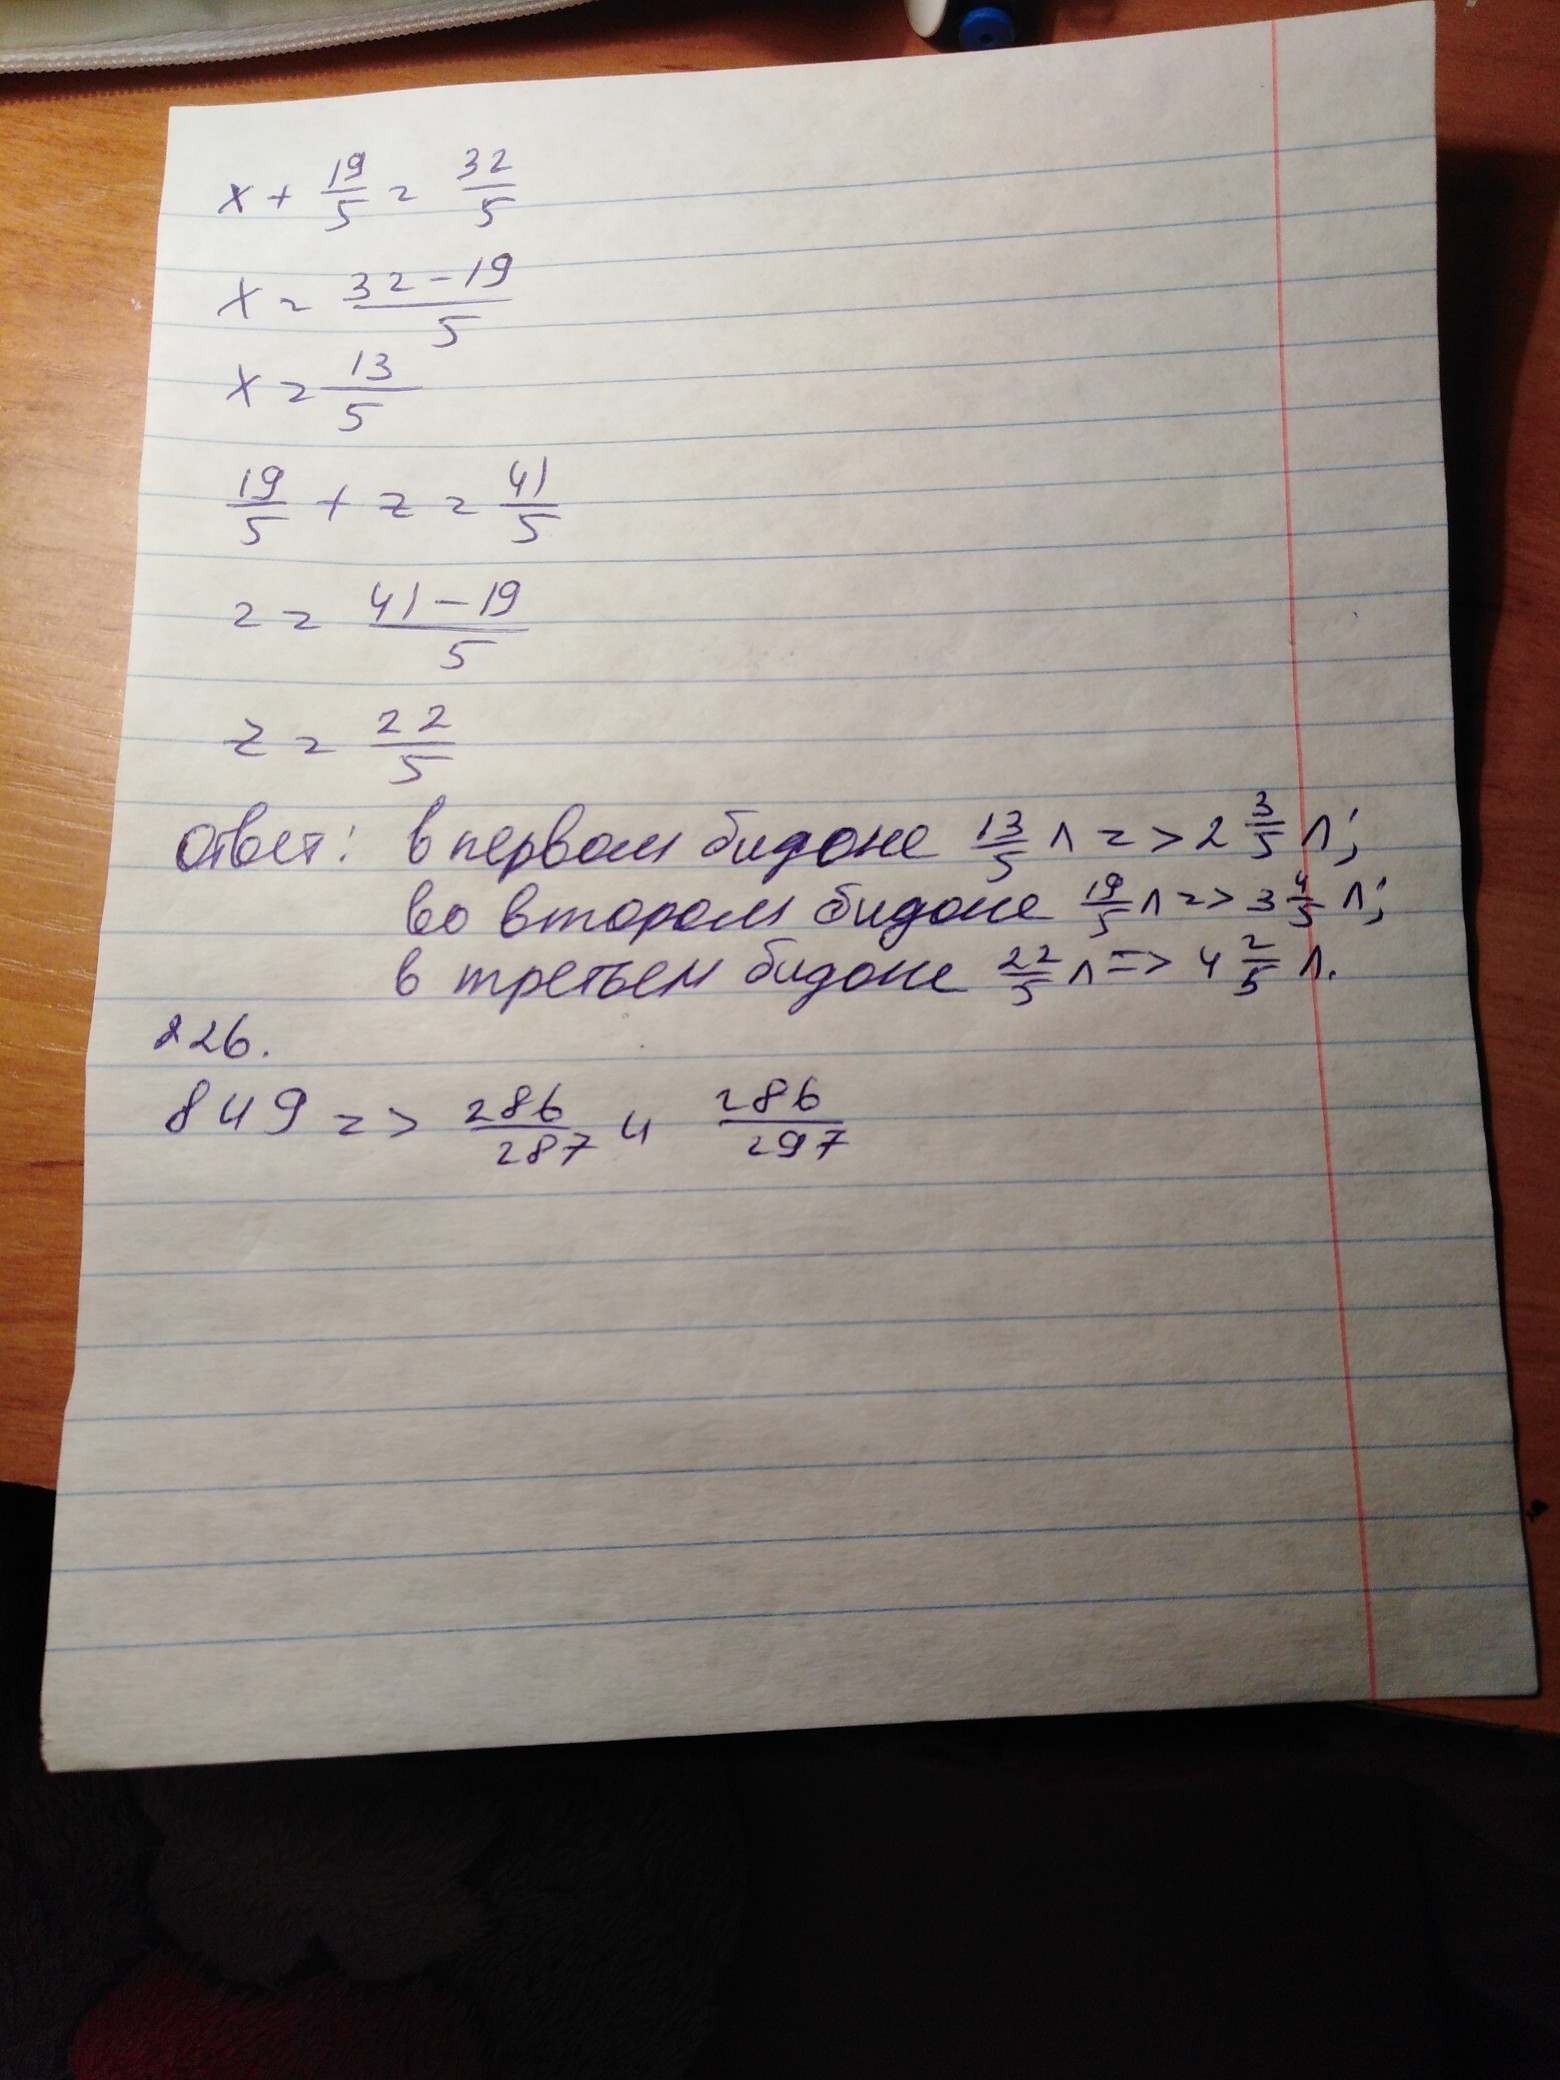 x + 19/5 = 32/5
x = 32-19/5
x = 13/5
19/5 + z = 41/5
z = 41-19/5
z = 22/5
Ответ: в первом бидоне 13/5 л => 2 3/5 л;
во втором бидоне 19/5 л => 3 4/5 л;
в третьем бидоне 22/5 л => 4 2/5 л.
226.
849 => 286/287 и 286/297